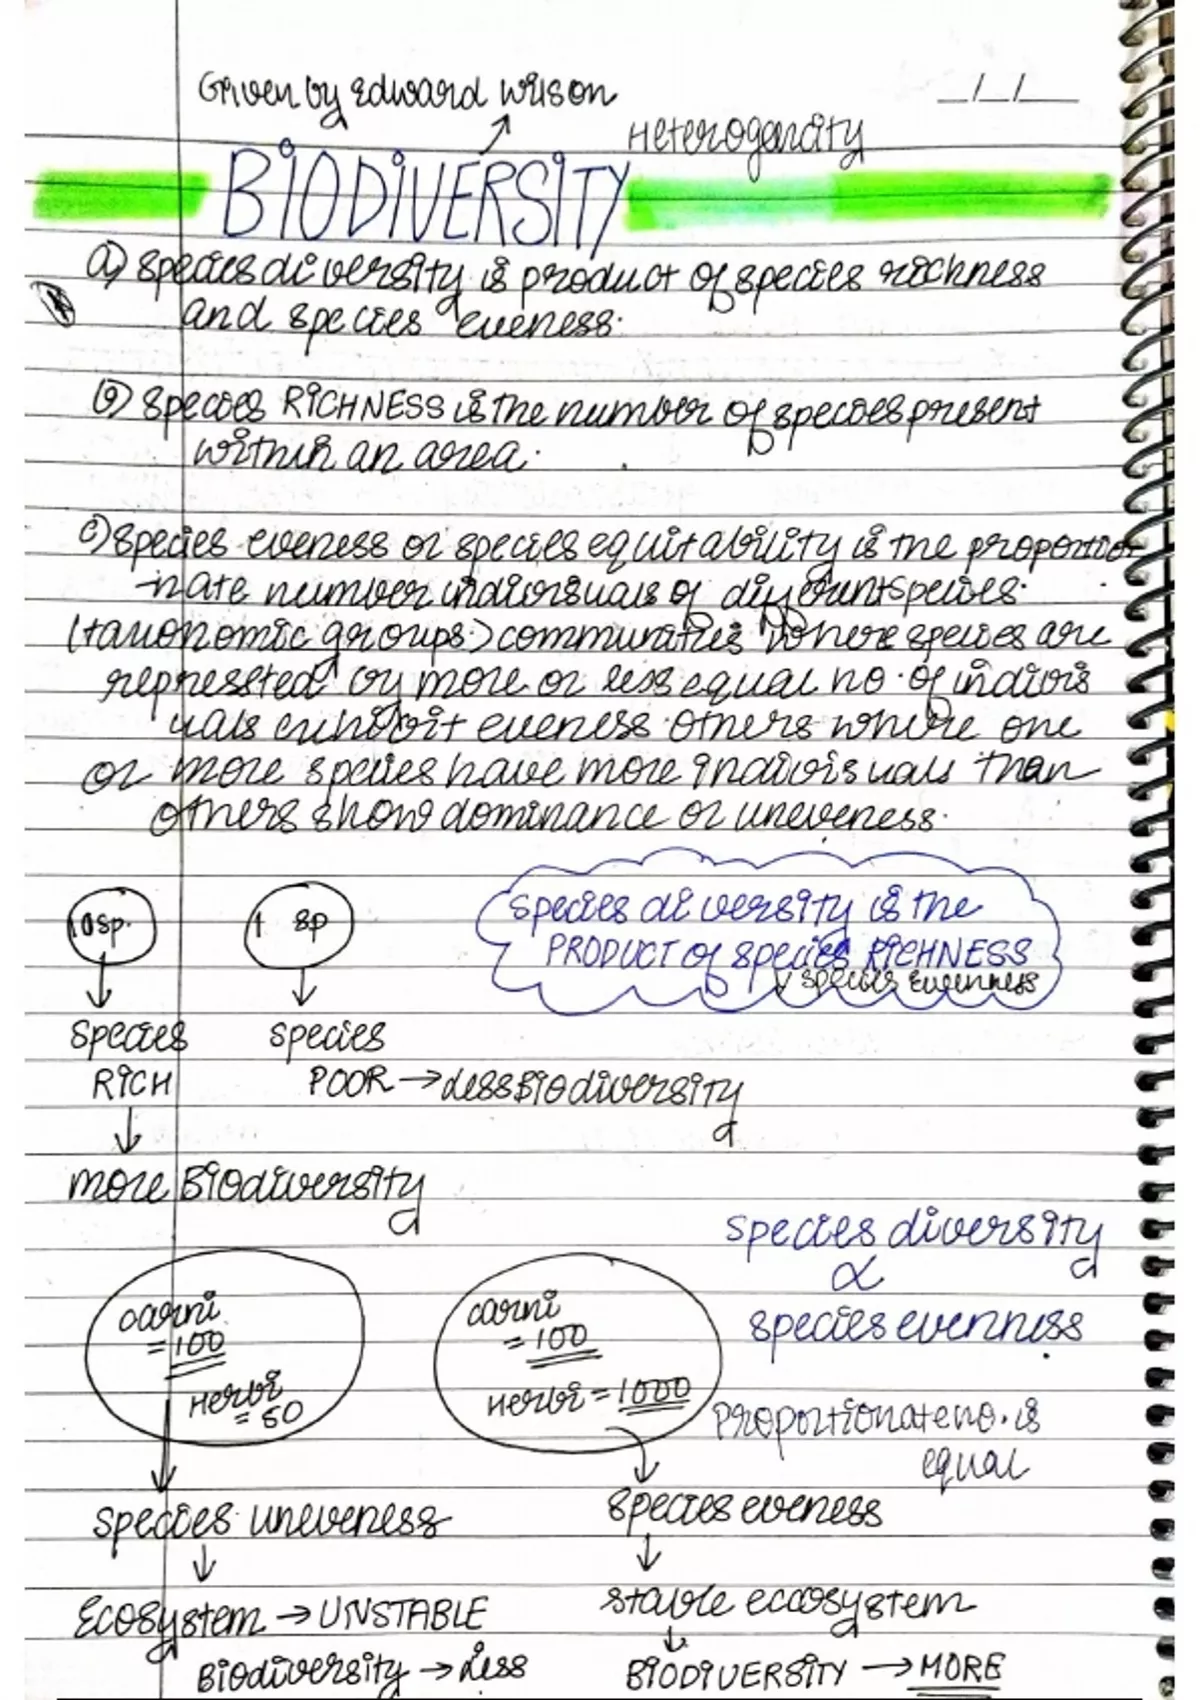 Given by Edward Wilson
__/__/__
Heterogencity
BIODIVERSITY
a) Species diversity is product of species richness
and species eveness.
(b) Species RICHNESS is the number of species present
within an area.
c) Species eveness or species equitability is the proportio
-nate number indivisuals of different species.
(taxonomic groups.) communities where species are
repressted by more or less equal no. of indivis
uals exhibit eveness. Others where one
or more species have more indivisuals than
others show dominance or uneveness.
10sp.
1 sp
Species diversity is the
PRODUCT of species RICHNESS
species evenness
Species
RICH
species
POOR → Less Biodiversity
more Biodiversity
Species diversity
∝
species evenness
carni
= 100
Herbi
= 50
carni
= 100
Herbi = 1000
Proportionate no. is
equal
Species uneveness
Species eveness
Ecosystem → UNSTABLE
Biodiversity → Less
stable eccosystem
BIODIVERSITY → MORE